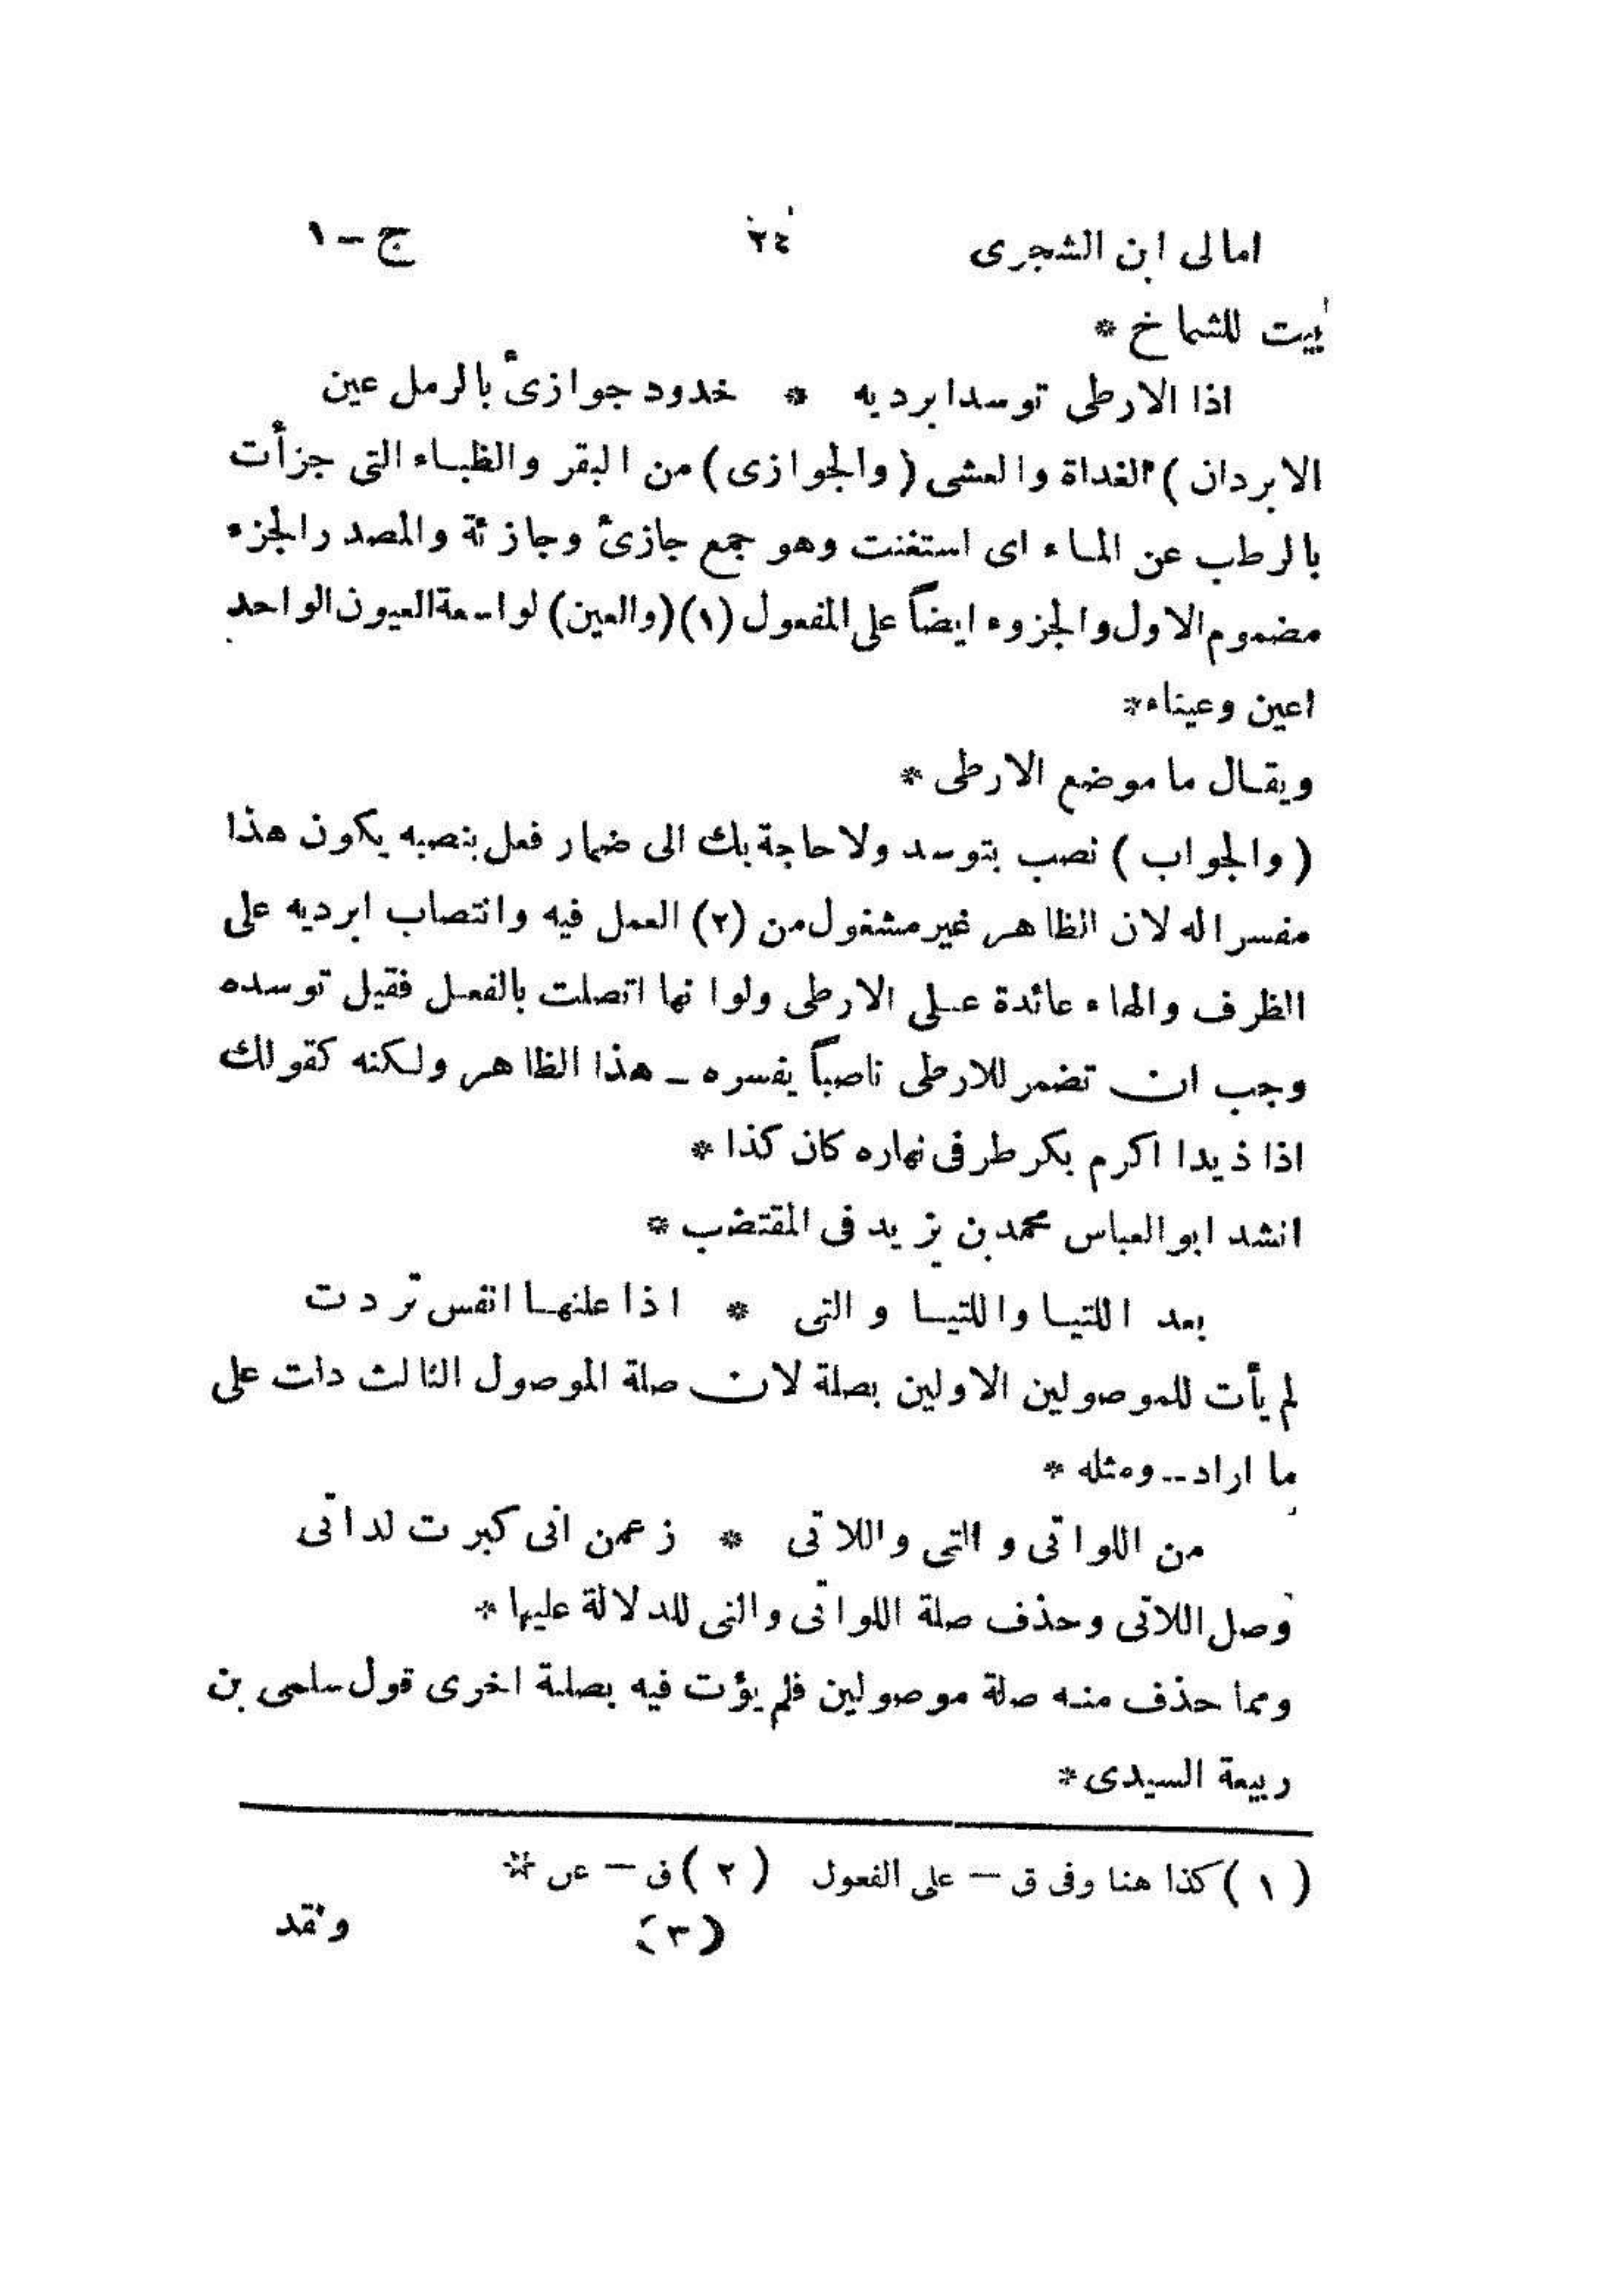 امالى ابن الشجرى ٢٤ ج – ١
بيت للشماخ *
اذا الارطى توسدابرديه * خدود جوازئ بالرمل عين
الابردان ) الغداة والعشى ( والجوازى ) من البقر والظباء التى جزأت
بالرطب عن الماء اى استغنت وهو جمع جازئ وجازئة والمصدرالجزء
مضموم الاول والجزوء ايضاً على المفعول (١) (والعين) لواسعة العيون الواحد
اعين وعيناء *
ويقال ما موضع الارطى *
( والجواب ) نصب بتوسد ولا حاجة بك الى ضمار فعل بنصبه يكون هذا
مفسرا له لان الظاهر غير مشغول من (٢) العمل فيه وانتصاب ابرديه على
الظرف والهاء عائدة على الارطى ولوا نها اتصلت بالفعل فقيل توسده
وجب ان تضمر للارطى ناصباً يفسره – هذا الظاهر ولكنه كقولك
اذا ذيدا اكرم بكر طرفى نهاره كان كذا *
انشد ابو العباس محمد بن يزيد فى المقتضب *
بعد اللتيا واللتيا والتى * اذا علنها انفس تردت
لم يأت للموصولين الاولين بصلة لان صلة الموصول الثالث دات على
ما اراد -- ومثله *
من اللواتى والتى واللاتى * زعمن انى كبرت لداتى
وصل اللاتى وحذف صلة اللواتى والتى للدلالة عليها *
ومما حذف منه صلة موصولين فلم يؤت فيه بصلة اخرى قول سلمى بن
ربيعة السيدى *
( ١ ) كذا هنا وفى ق – على الفعول ( ٢ ) فى – عن *
(٣) ولقد